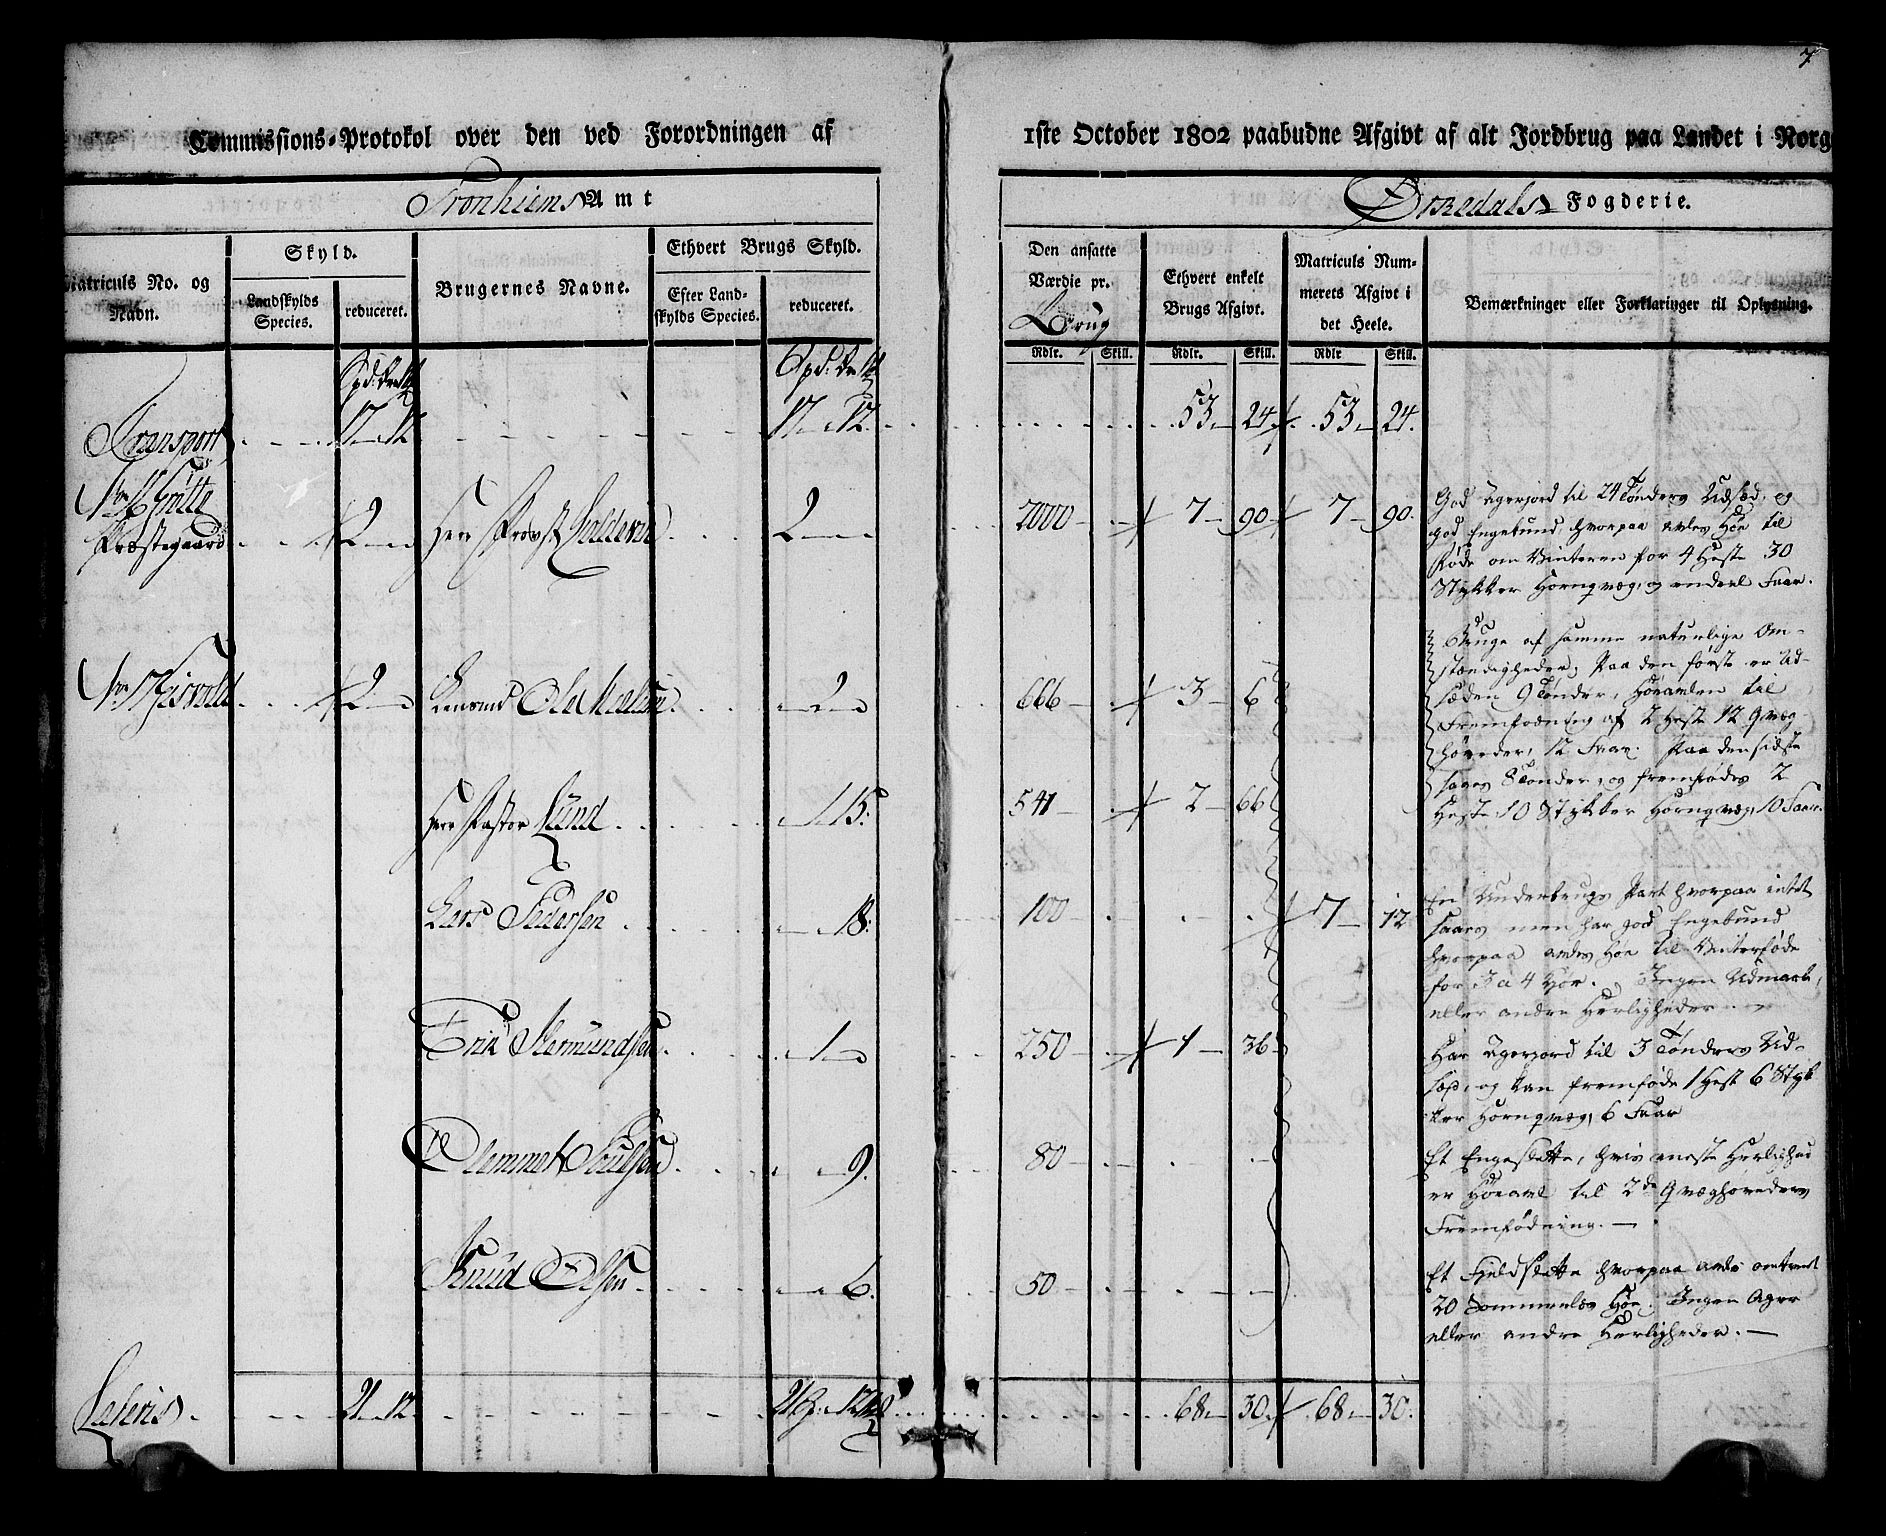 7
Commissions-Protokol over den ved Forordningen af 1ste October 1802 paabudne Afgivt af alt Jordbrug paa Landet i Norg
Tronhiems Amt
Orkedals Fogderie.
Matriculs No. og Navn.
Skyld.
Landskylds Species.
reduceret.
Brugernes Navne.
Ethvert Brugs Skyld.
Efter Landskylds Species.
reduceret.
Den ansatte Værdie pr. Brug
Ethvert enkelt Brugs Afgivt.
Matriculs Nummerets Afgivt i det Heele.
Bemærkninger eller Forklaringer til Oplysning.
Rdlr. Skill. Rdlr. Skill. Rdlr Skill.
Transport 17 12 17 12 53 24 53 24
Præstegaard 2 Herr Provst 2 2000 7 90 7 90
God Agerjord til 24 Tønders Udsæd, og
god Engebund hvorpaa avles Høe til
Føde om Vinteren for 4 Heste 30
Stykker Hornqvæg, og endeel Faar.
2 Lensmd Ole 2 666 3 6
Begge af samme naturlige Om-
stændigheder, Paa den første er Ud-
sæden 9 Tønder, Høeavlen til
Fremfødning af 2 Heste 12 Qvæg
høveder, 12 Faar. Paa den sidste
saaes 8 Tønder, og fremfødes 2
Heste 10 Stykker Hornqvæg, 10 Faar.
Herr Pastor Lund 1 15 541 2 66
Lars Pedersen 18 100 7 12
En Underbrugs Part hvorpaa intet
saaes men har god Engebund
hvorpaa avles Høe til Vinterføde
for 3 a 4 Kiør. Ingen Udmark,
eller andre Herligheder
Erik 1 250 1 36
Har Agerjord til 3 Tønders Ud-
sæd, og kan fremføde 1 Hest 6 Styk
ker Hornqvæg, 6 Faar
9 80
Et Engeslette, hvis eneste Herlighed
er Høeavl til 2de Qvæghøveders
Fremfødning.
Knud Olsen 6 50
Et Fjeldslette hvorpaa avles omtrent
20 Sommerlæs Høe. Ingen Ager
eller andre Herligheder.
Lateris 21 12 21 12 68 30 68 30